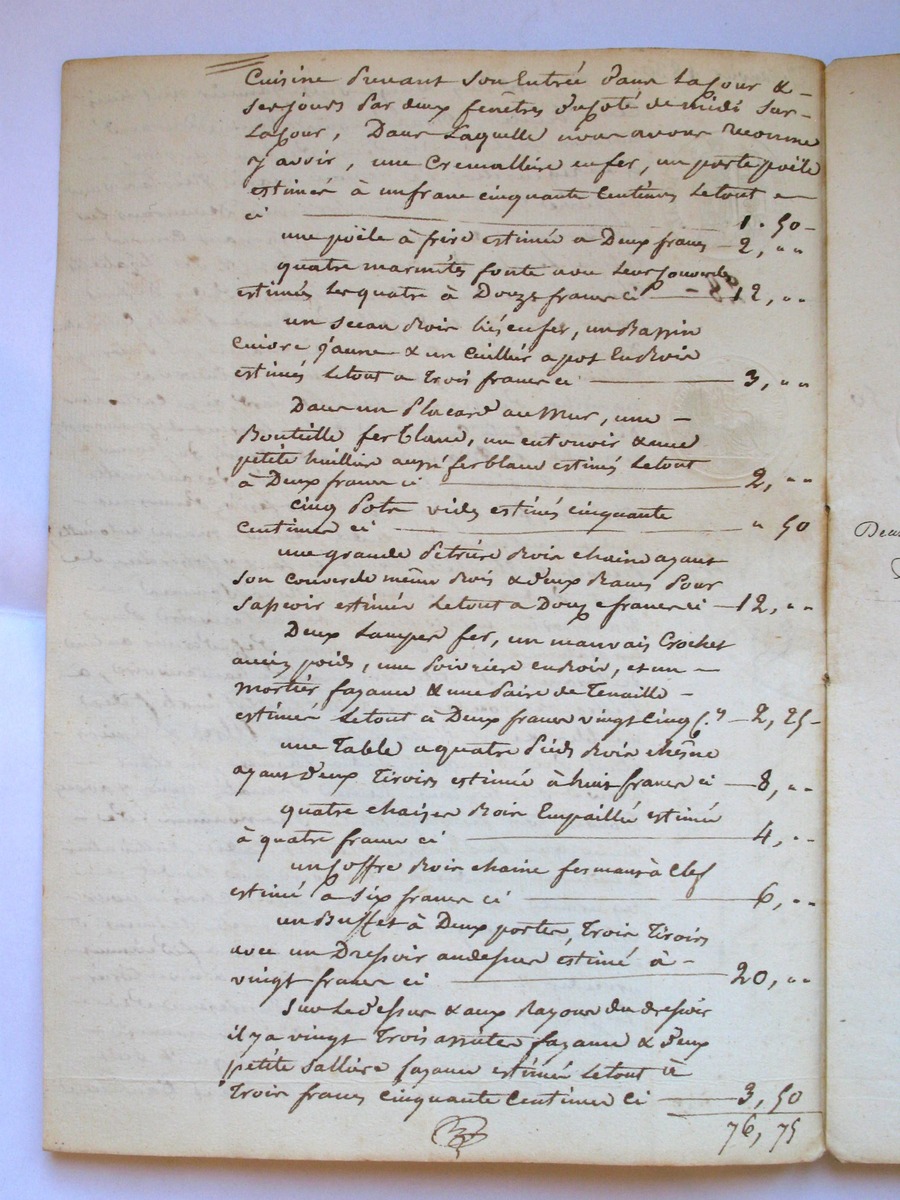 Cuisine Prenant son Entrée dans La Cour &
ses jours Par deux fenêtres du Coté de midi sur
La Cour, Dans Laquelle nous avons reconnu
y avoir, une Cremallière en fer, un porte poële
estimés à un franc cinquante Centimes Le tout
ci 1 . 50
une poële à frire estimée a Deux francs 2, " "
quatre marmites fonte avec Leurs Couvercles
estimés Les quatre à Douze francs ci 12, " "
un seau Bois liés en fer, un Bassin
Cuivre jaune & un Cuillier a pot En Bois
estimés Le tout a Trois francs ci 3, " "
Dans un Placard au Mur, une
Bouteille fer Blanc, un entonoir & une
petite huillière aussi fer blanc estimés Le tout
à Deux francs ci 2, " "
cinq Pots vides estimés cinquante
Centimes ci " 50
une grande Petrière Bois chaine ayant
son couvercle même Bois & deux Bancs Pour
s'asseoir estimés Le tout a Douze francs ci 12, " "
Deux Lampes fer, un mauvais Crochet
ancien poids, une Poivrière en Bois, et un
mortier fayance & une Paire de Tenaille
estimés Le tout à Deux francs vingt Cinq C. 2, 25
une Table a quatre Pieds Bois chesne
ayant deux Tiroirs estimée à huit francs ci 8, " "
quatre chaises Bois Empaillé estimée
à quatre francs ci 4, " "
un Coffre Bois chaine fermant à Clef
estimé à Six francs ci 6, " "
un Buffet à Deux portes, Trois Tiroirs
avec un Dressoir au dessus estimé à
vingt francs ci 20, " "
Sur Le dessus & aux Rayons du dressoir
il y a vingt Trois assietes fayance & deux
petite Sallière fayance estimés Le tout à
Trois francs Cinquante Centimes Ci 3, 50
76, 75